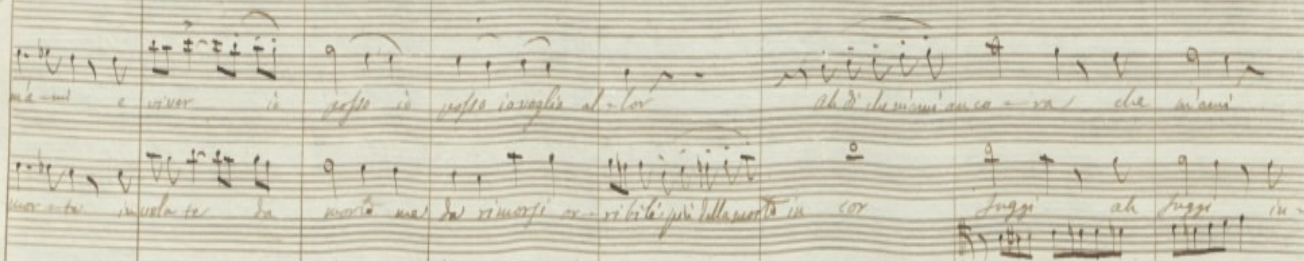 m'a-mi e viver io posso io posso io voglio al-lor ah di che m'ami anco-ra che m'ami
morte involate da morte ma da rimorsi or-ribili più della morte in cor fuggi ah fuggi in-